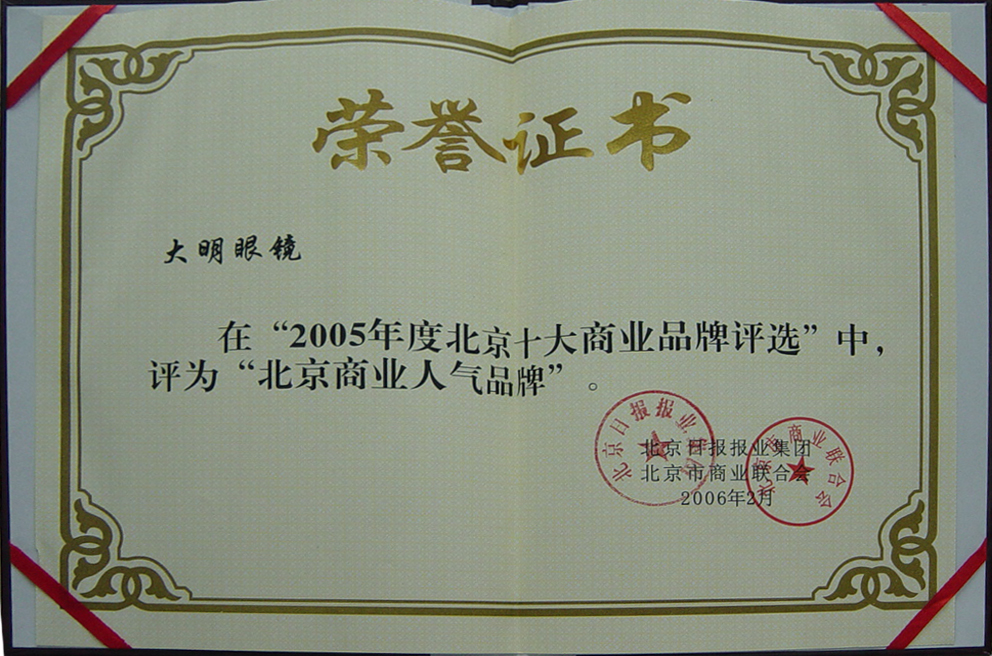 荣誉证书
大明眼镜
在“2005年度北京十大商业品牌评选”中，
评为“北京商业人气品牌”。
北京日报报业集团
北京市商业联合会
2006年2月
北京日报报业集团
北京市商业联合会